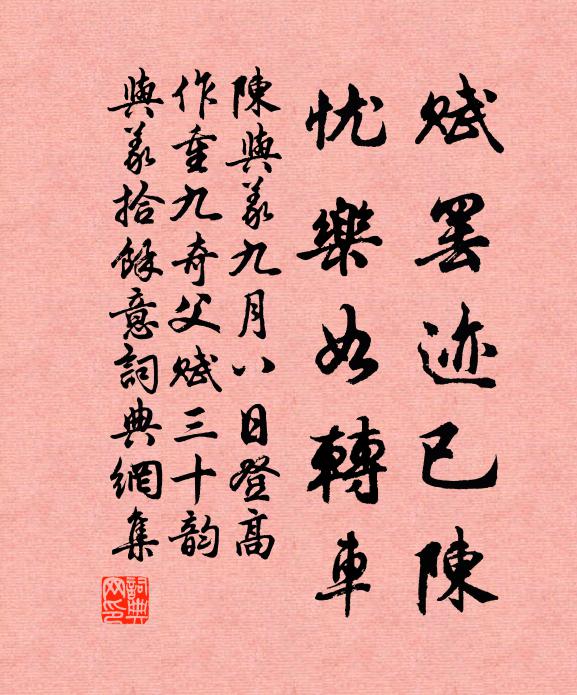 賦罷迹已陳
忧樂如轉車
陳與義九月八日登高
作重九奇父賦三十韵
與義拾餘意詞典網集
詞典网印